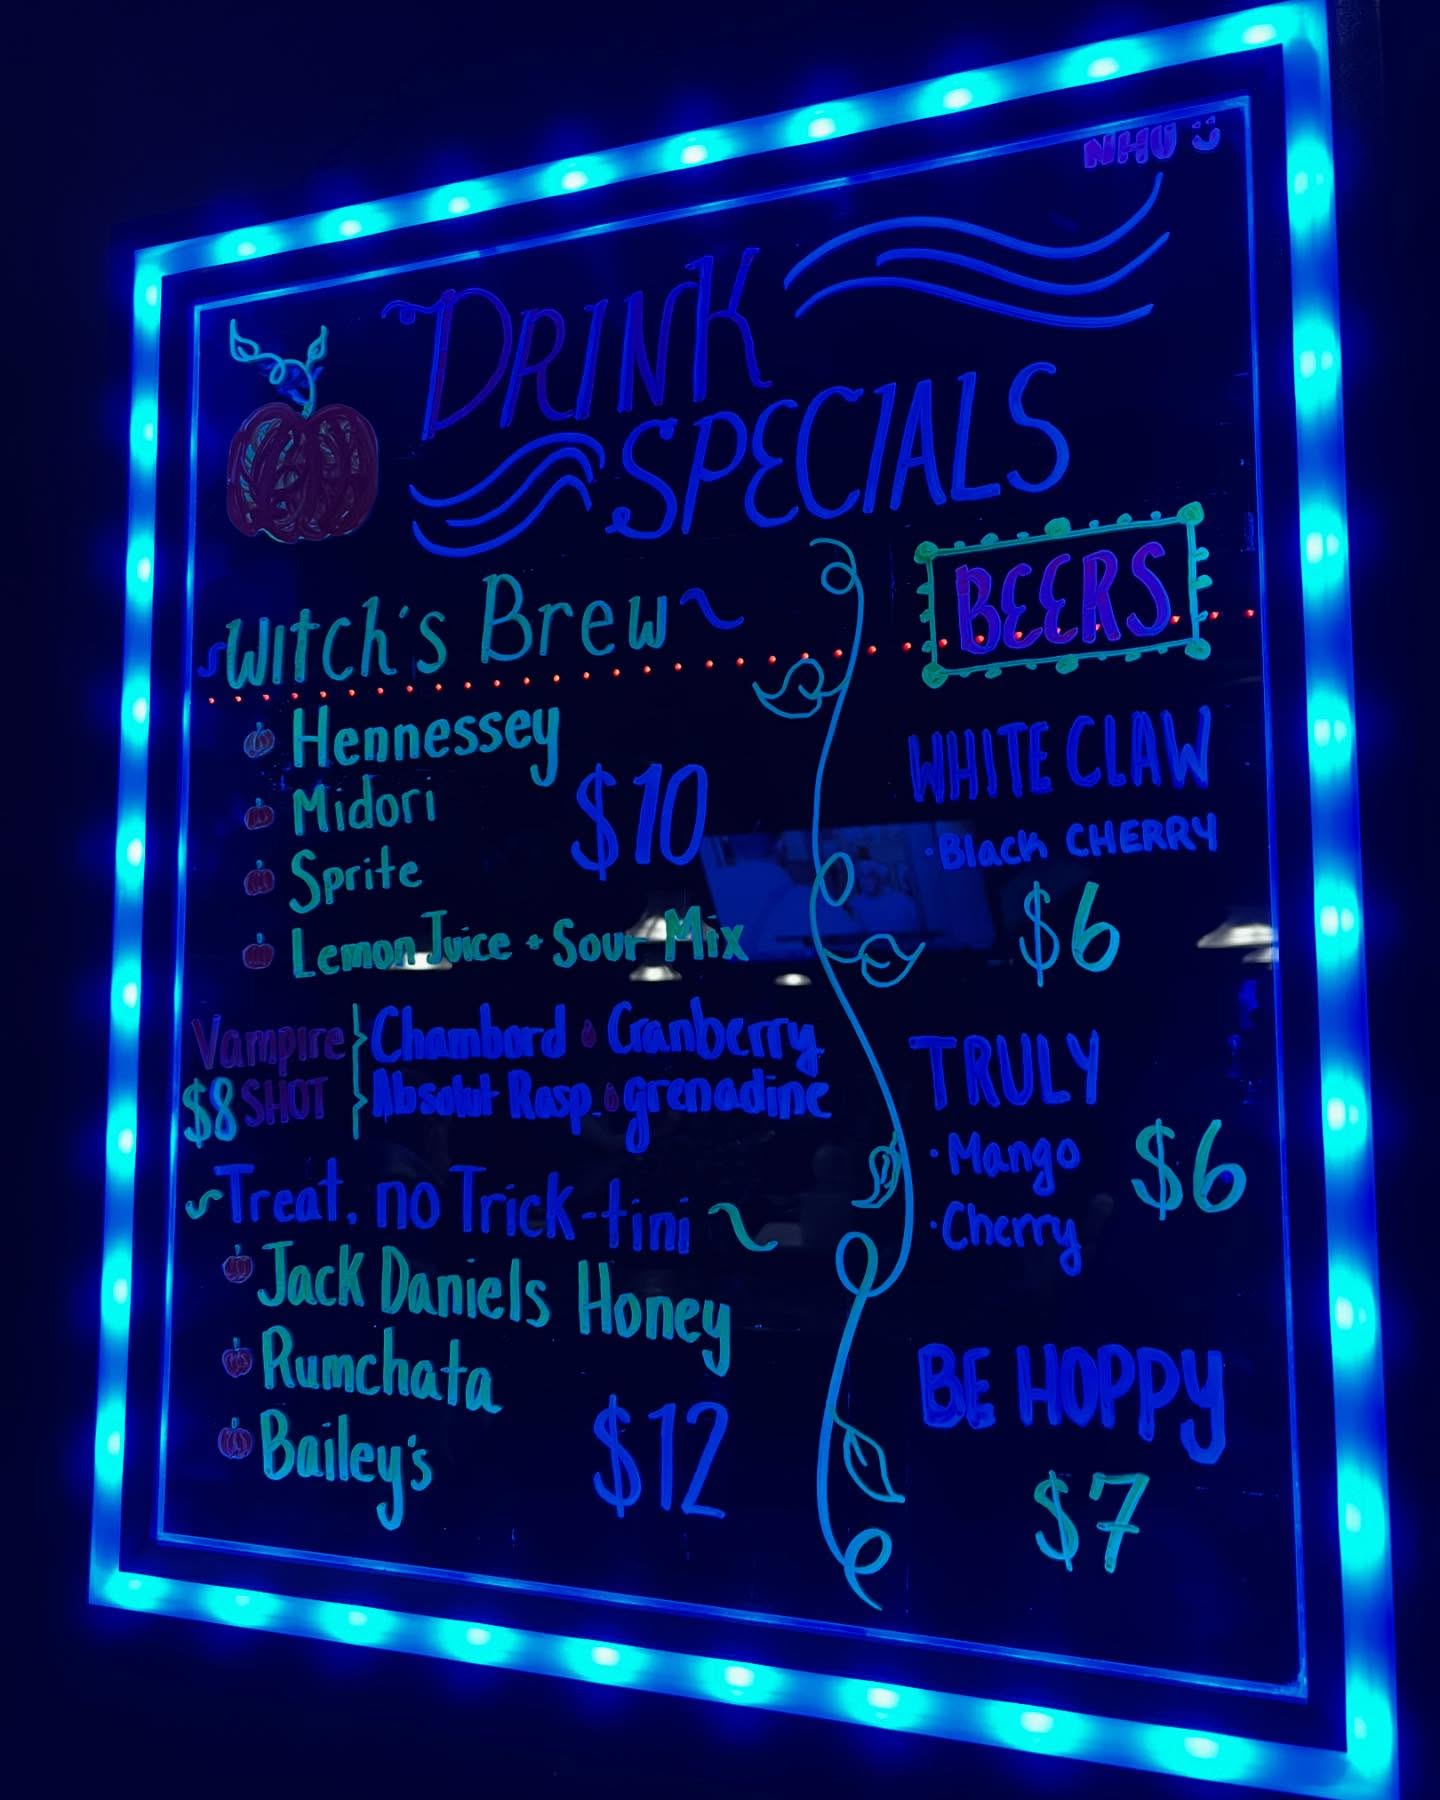 NHU
DRINK
SPECIALS
Witch's Brew
Hennessey
Midori
$10
Sprite
Lemon Juice + Sour Mix
Vampire
$8 SHOT
Chambord Cranberry
Absolut Rasp. grenadine
Treat, no Trick-tini
Jack Daniels Honey
Rumchata
Bailey's
$12
BEERS
WHITE CLAW
• Black CHERRY
$6
TRULY
• Mango
• Cherry
$6
BE HOPPY
$7